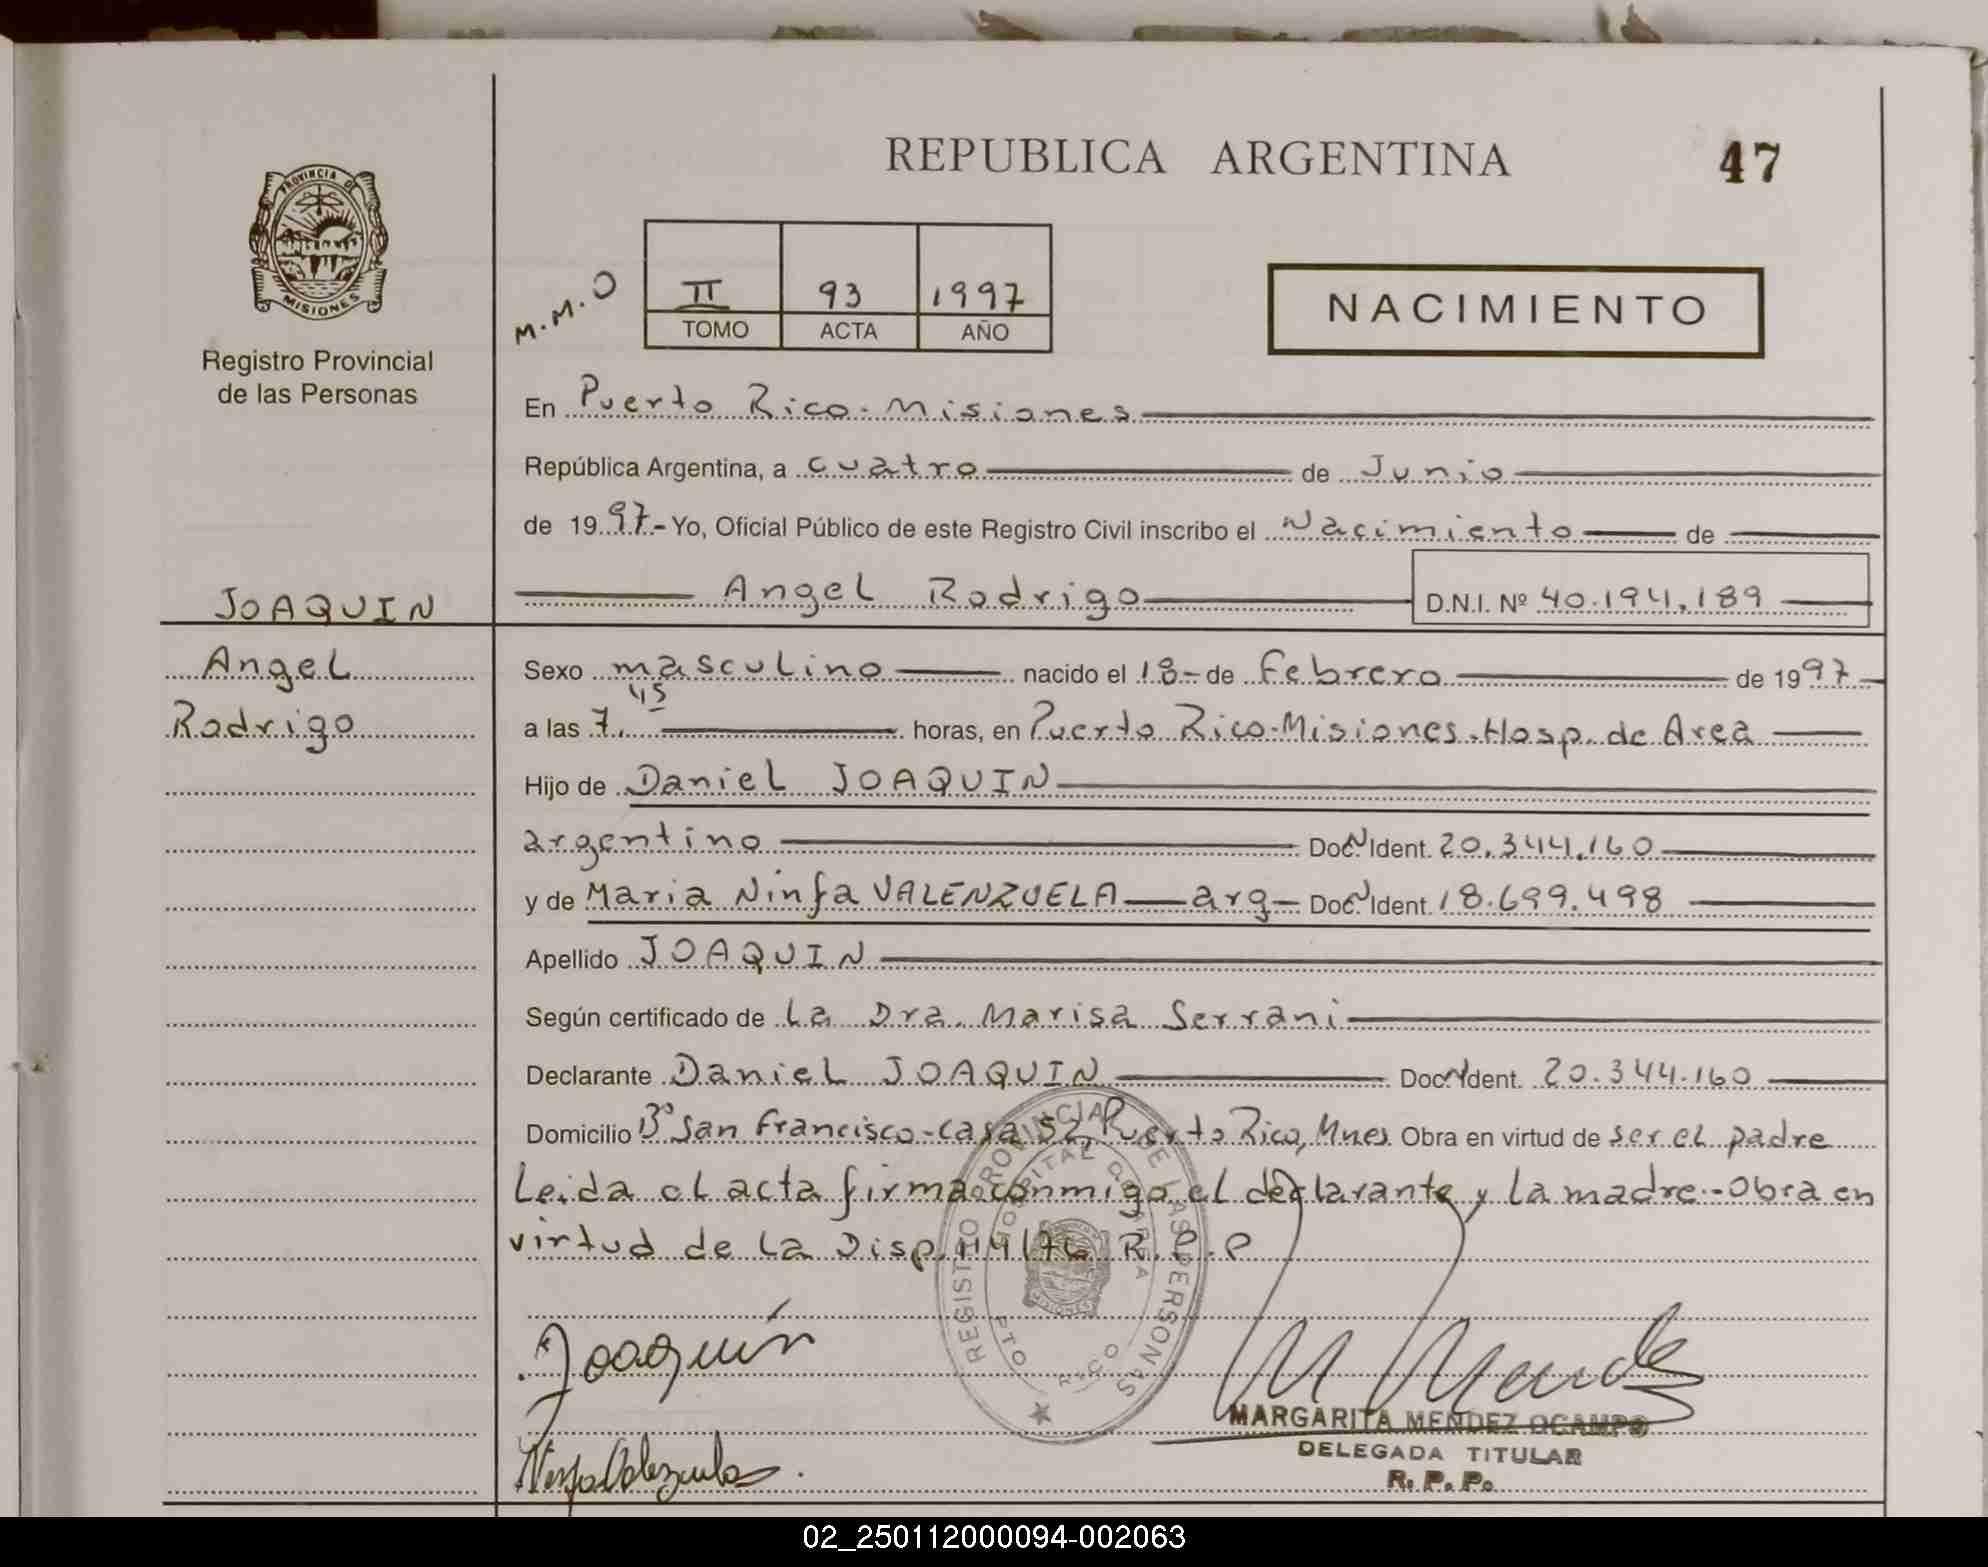 REPUBLICA ARGENTINA
47
PROVINCIA DE
MISIONES
Registro Provincial
de las Personas
M.M.O
II 93 1997
TOMO ACTA AÑO
NACIMIENTO
En Puerto Rico - Misiones
República Argentina, a cuatro de Junio
de 1997.- Yo, Oficial Público de este Registro Civil inscribo el Nacimiento de
Angel Rodrigo D.N.I. Nº 40.194.189
JOAQUIN
Angel
Rodrigo
Sexo masculino nacido el 18- de Febrero de 1997
a las 7,45 horas, en Puerto Rico-Misiones. Hosp. de Area
Hijo de Daniel JOAQUIN
argentino Doc. Ident. 20.344.160
y de Maria Ninfa VALENZUELA arg Doc. Ident. 18.699.498
Apellido JOAQUIN
Según certificado de La Dra. Marisa Serrani
Declarante Daniel JOAQUIN Doc. Ident. 20.344.160
Domicilio Bº San Francisco-casa 52, Puerto Rico, Mnes Obra en virtud de ser el padre
Leida el acta firma conmigo el declarante y la madre.-Obra en
virtud de la Disp. 114/76 R.P.P
REGISTRO PROVINCIAL DE LAS PERSONAS
HOSPITAL DE AREA
PTO RICO
MISIONES
Joaquín
Ninfa Valenzuela
M Mendez
MARGARITA MENDEZ OCAMPO
DELEGADA TITULAR
R. P. P.
02_250112000094-002063